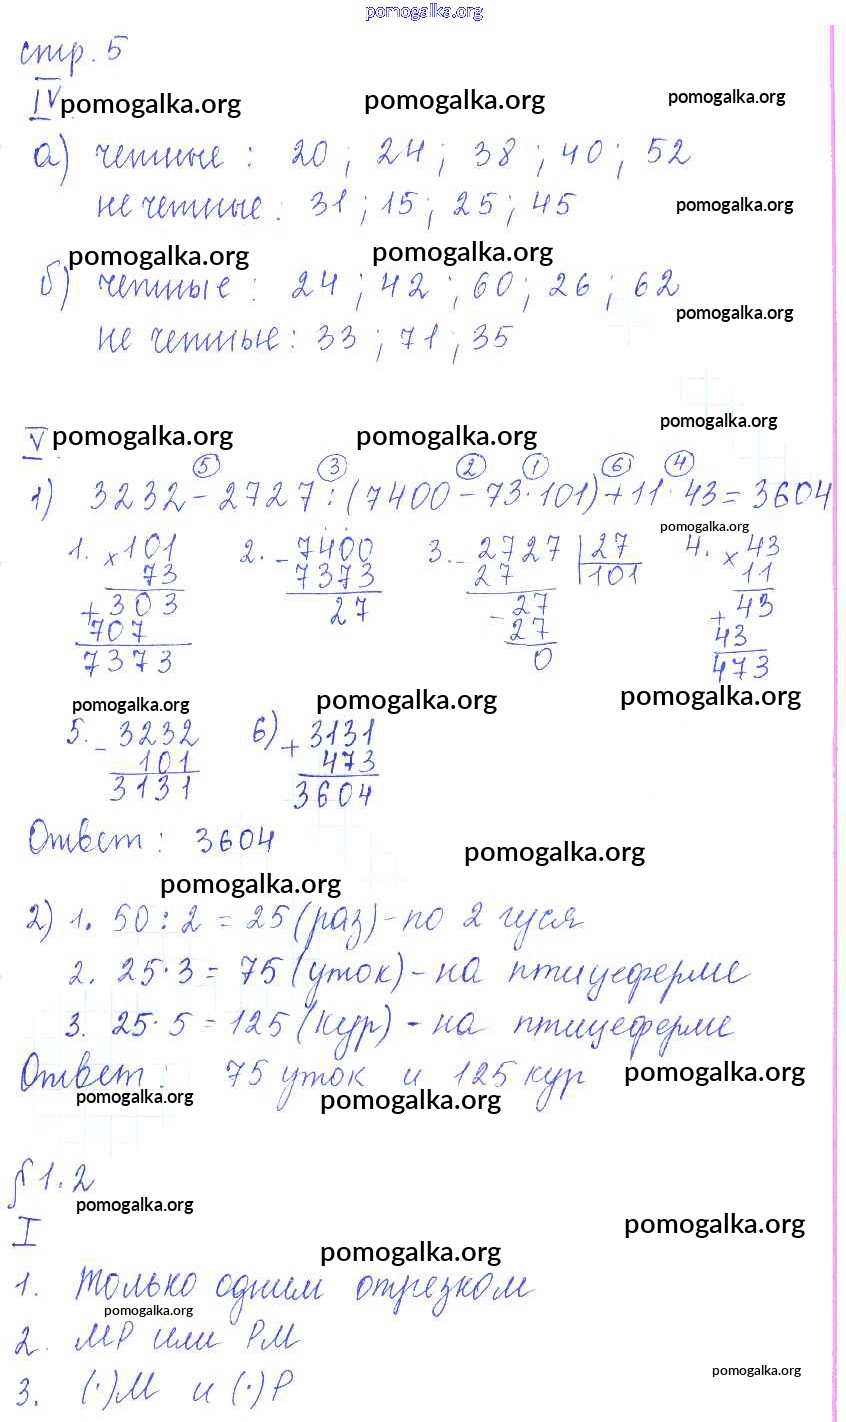 pomogalka.org
стр. 5
IV pomogalka.org pomogalka.org pomogalka.org
а) четные : 20 ; 24 ; 38 ; 40 ; 52
не четные : 31 ; 15 ; 25 ; 45 pomogalka.org
pomogalka.org pomogalka.org
б) четные : 24 ; 42 ; 60 ; 26 ; 62
pomogalka.org
не четные : 33 ; 71 ; 35
pomogalka.org
V pomogalka.org pomogalka.org
5 3 2 1 6 4
1) 3232 - 2727 : (7400 - 73 · 101) + 11 · 43 = 3604
pomogalka.org
1. × 101 2. - 7400 3. - 2727 | 27 4. × 43
73 7373 27 101 11
+ 303 27 - 27 + 43
707 27 43
7373 0 473
pomogalka.org pomogalka.org pomogalka.org
5. - 3232 6) + 3131
101 473
3131 3604
Ответ : 3604
pomogalka.org
pomogalka.org
2) 1. 50 : 2 = 25 (раз) - по 2 гуся
2. 25 · 3 = 75 (уток) - на птицеферме
3. 25 · 5 = 125 (кур) - на птицеферме
Ответ : 75 уток и 125 кур pomogalka.org
pomogalka.org pomogalka.org
§ 1.2
pomogalka.org
I pomogalka.org
pomogalka.org
1. только одним отрезком
pomogalka.org
2. МР или РМ
pomogalka.org
3. (·)М и (·)Р